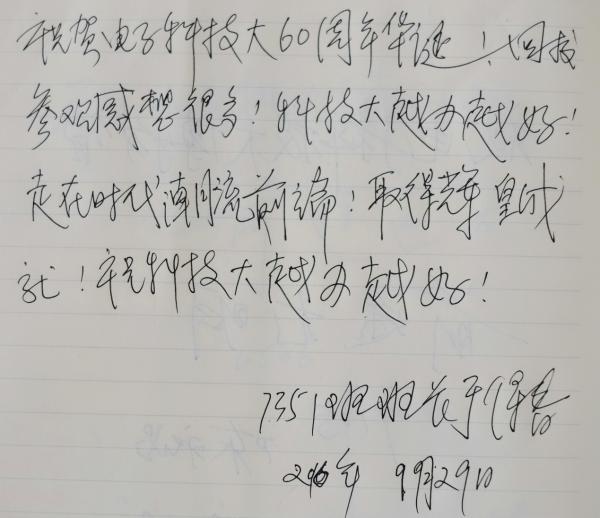 祝贺电子科技大60周年华诞！回校
参观感想很多！科技大越办越好！
走在时代潮流前端！取得辉皇成
就！祝科技大越办越好！
7351班班长于
2016年 9月29日